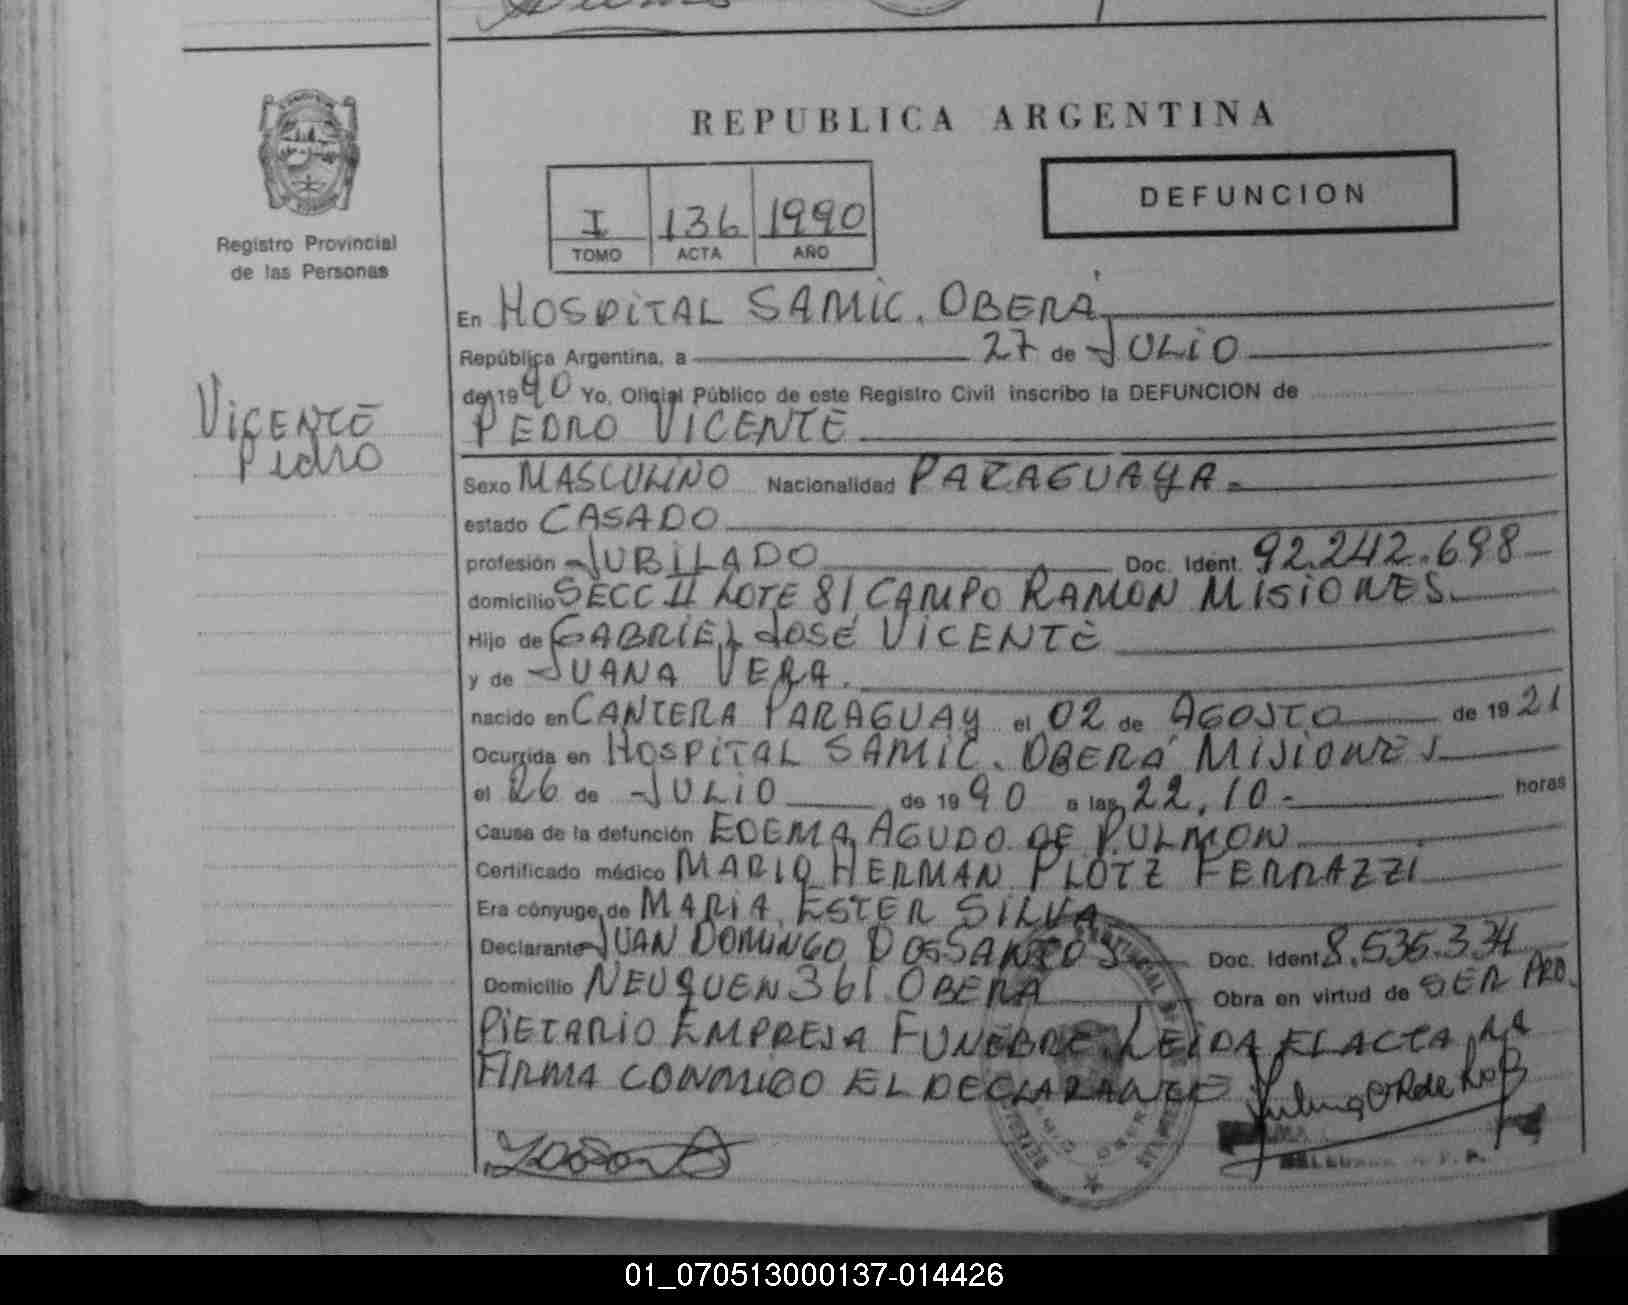 REPUBLICA ARGENTINA
DEFUNCION
I 136 1990
TOMO ACTA AÑO
Registro Provincial
de las Personas
VICENTE
Pedro
En HOSPITAL SAMIC. OBERÁ
República Argentina, a 27 de JULIO
de 1990 Yo, Oficial Público de este Registro Civil inscribo la DEFUNCION de
PEDRO VICENTE
Sexo MASCULINO Nacionalidad PARAGUAYA.
estado CASADO
profesión JUBILADO Doc. Ident. 92.242.698
domicilio SECC II LOTE 81 CAMPO RAMON MISIONES.
Hijo de GABRIEL JOSÉ VICENTE
y de JUANA VERA.
nacido en CANTERA PARAGUAY el 02 de AGOSTO de 1921
Ocurrida en HOSPITAL SAMIC. OBERÁ MISIONES
el 26 de JULIO de 1990 a las 22,10.- horas
Causa de la defunción EDEMA AGUDO DE PULMON
Certificado médico MARIO HERMAN PLOTZ FERRAZZI
Era cónyuge de MARIA ESTER SILVA
Declarante JUAN DOMINGO DOSSANTOS Doc. Ident 8.535.334
Domicilio NEUQUEN 361. OBERA Obra en virtud de SER PRO.
PIETARIO EMPRESA FUNEBRE. LEIDA EL ACTA LA
FIRMA CONMIGO EL DECLARANTE
01_070513000137-014426